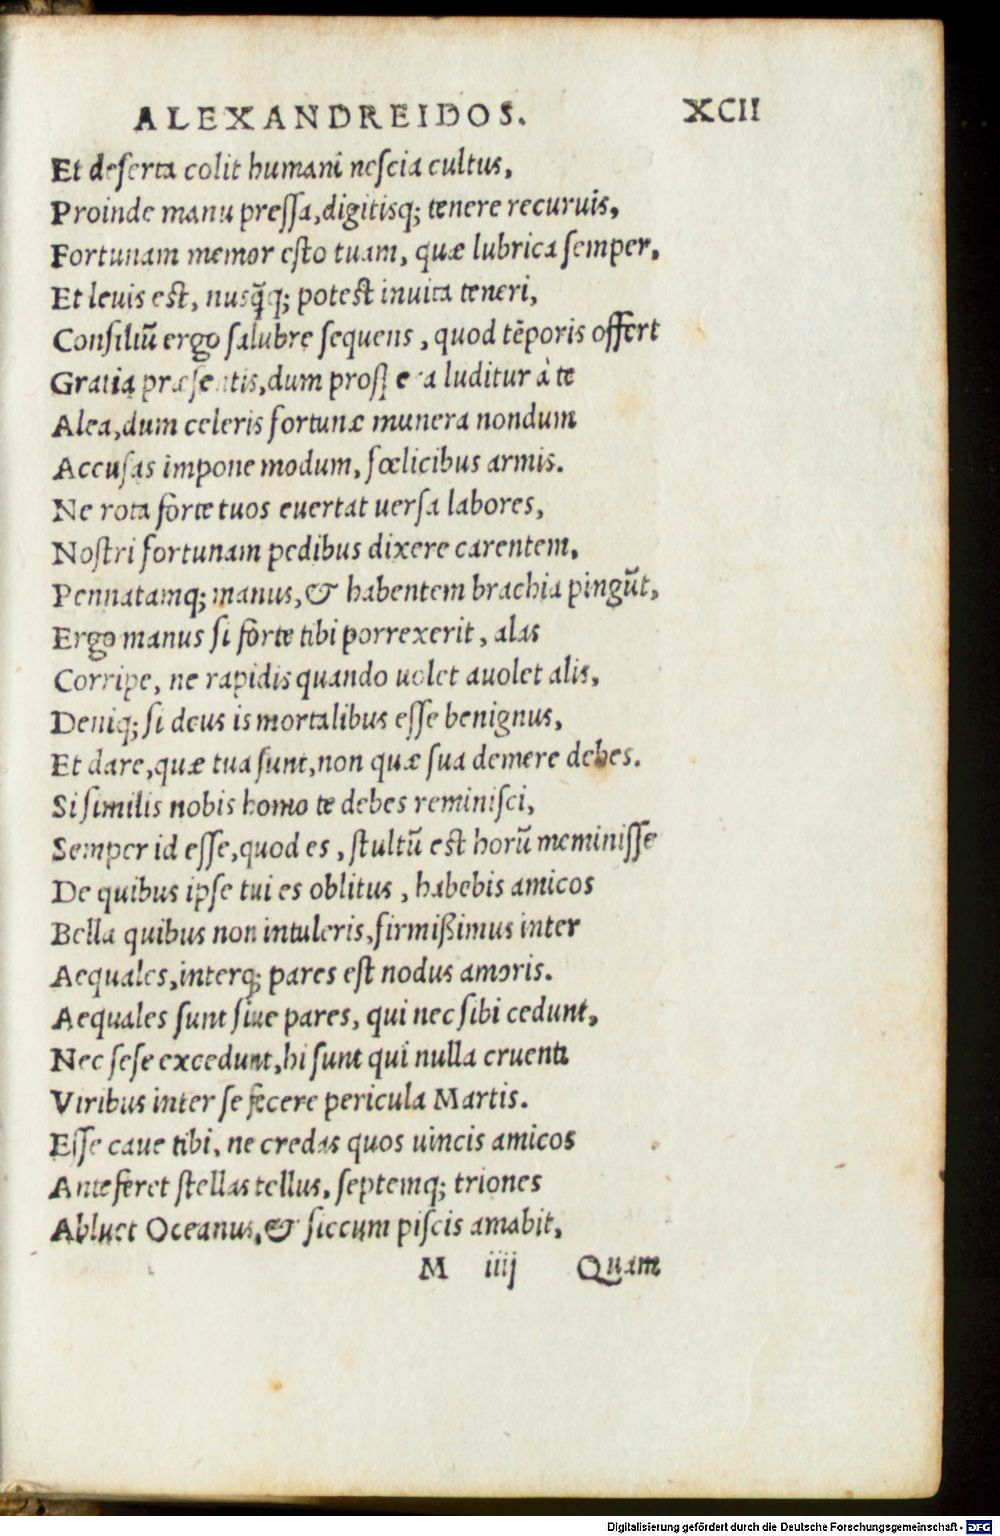 ALEXANDREIDOS. XCII
Et deſerta colit humani neſcia cultus,
Proinde manu preſſa, digitisq; tenere recuruis,
Fortunam memor eſto tuam, quæ lubrica ſemper,
Et leuis eſt, nusq̃q; poteſt inuita teneri,
Conſiliũ ergo ſalubre ſequens, quod tẽporis offert
Gratia præſentis, dum proſpera luditur à te
Alea, dum celeris fortunæ munera nondum
Accuſas impone modum, fœlicibus armis.
Ne rota forte tuos euertat uerſa labores,
Noſtri fortunam pedibus dixere carentem,
Pennatamq; manus, & habentem brachia pingũt,
Ergo manus ſi forte tibi porrexerit, alas
Corripe, ne rapidis quando uolet auolet alis,
Deniq; ſi deus is mortalibus eſſe benignus,
Et dare, quæ tua ſunt, non quæ ſua demere debes.
Si ſimilis nobis homo te debes reminiſci,
Semper id eſſe, quod es, ſtultũ eſt horũ meminiſſe
De quibus ipſe tui es oblitus, habebis amicos
Bella quibus non intuleris, firmißimus inter
Aequales, interq; pares eſt nodus amoris.
Aequales ſunt ſiue pares, qui nec ſibi cedunt,
Nec ſeſe excedunt, hi ſunt qui nulla cruenti
Viribus inter ſe fecere pericula Martis.
Eſſe caue tibi, ne credas quos uincis amicos
Anteferet ſtellas tellus, ſeptemq; triones
Abluet Oceanus, & ſiccum piſcis amabit,
M iiij Quam
Digitalisierung gefördert durch die Deutsche Forschungsgemeinschaft - DFG